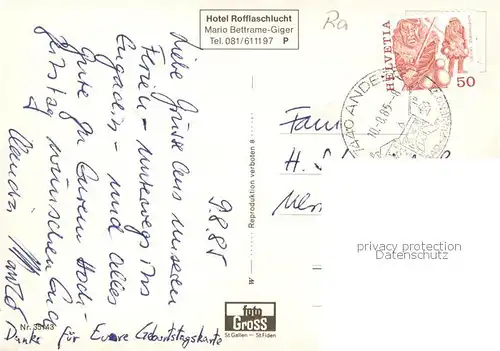 Hotel Rofflaschlucht
Mario Bettrame-Giger
Tel. 081/611197 P
Ra
HELVETIA
50
7440 ANDE
10.-8.85.-
9.8.85
Liebe Grüsse aus unseren
Ferien - unterwegs ins
Engadin - und alles
Gute zu Eurem Hoch-
zeitstag wünschen Euch
Claudia
Danke für Euere Geburtstagskarte
Fam
H.
W
Reproduktion verboten
privacy protection
oldthing.com
Nr. 35143
foto
Gross
St. Gallen — St. Fiden